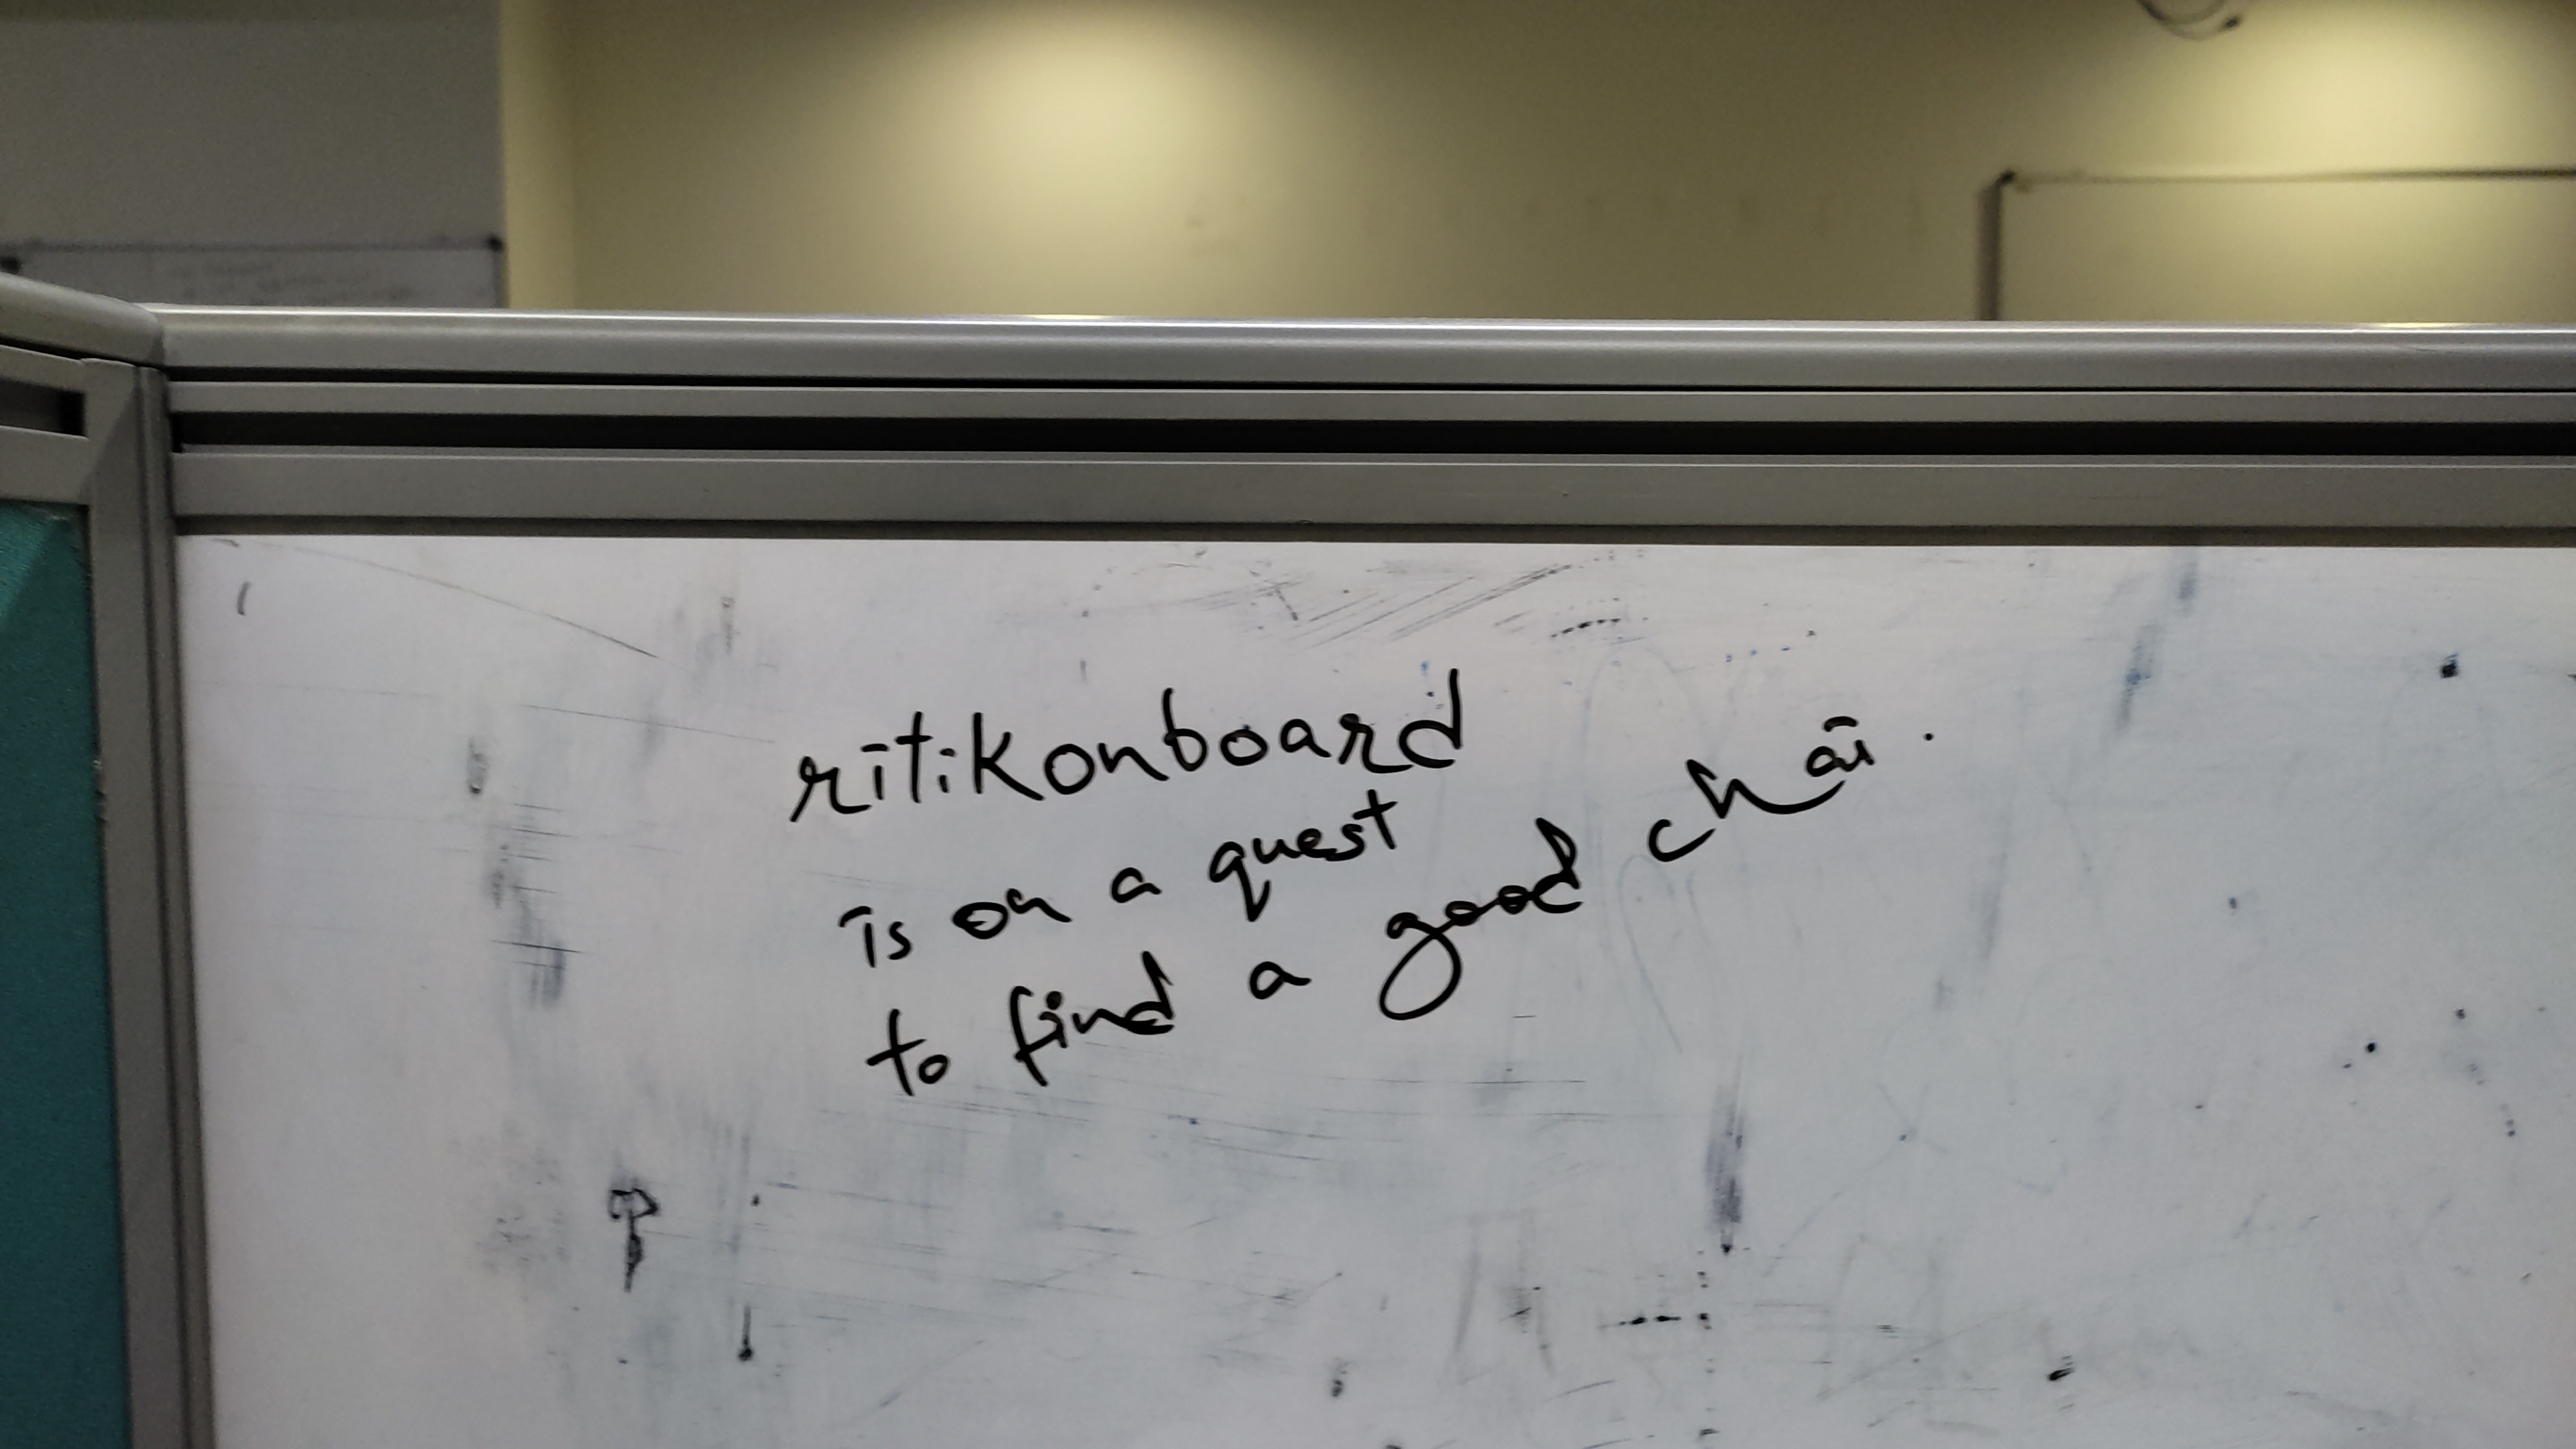 ritikonboard
is on a quest
to find a good chai.